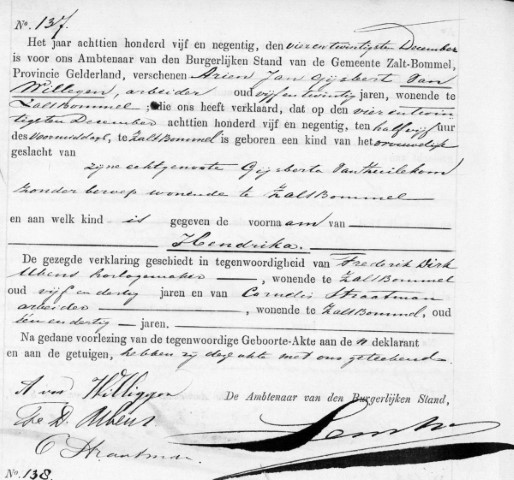 No. 137.
Het jaar achttien honderd vijf en negentig, den vierentwintigsten December
is voor ons Ambtenaar van den Burgerlijken Stand van de Gemeente Zalt-Bommel,
Provincie Gelderland, verschenen Arien Jan Gijsbert van
Willegen, arbeider oud vijf en twintig jaren, wonende te
ZaltBommel; die ons heeft verklaard, dat op den vier en twin
tigsten December achttien honderd vijf en negentig, ten half vijf uur
des voormiddags, te ZaltBommel is geboren een kind van het vrouwelijk
geslacht van
zijne echtgenoote Gijsberta van Tuilekom
zonder beroep wonende te ZaltBommel
en aan welk kind is gegeven de voornaam van
Hendrika.
De gezegde verklaring geschiedt in tegenwoordigheid van Frederik Dirk
Ubens horlogemaker, wonende te ZaltBommel
oud vijf en dertig jaren en van Cornelis Straatman
arbeider, wonende te ZaltBommel, oud
één en dertig jaren.
Na gedane voorlezing van de tegenwoordige Geboorte-Akte aan de n deklarant
en aan de getuigen, hebben zij deze akte met ons geteekend.
A van Willigen
De Ambtenaar van den Burgerlijken Stand,
D. Ubens
C Straatman.
No. 138.